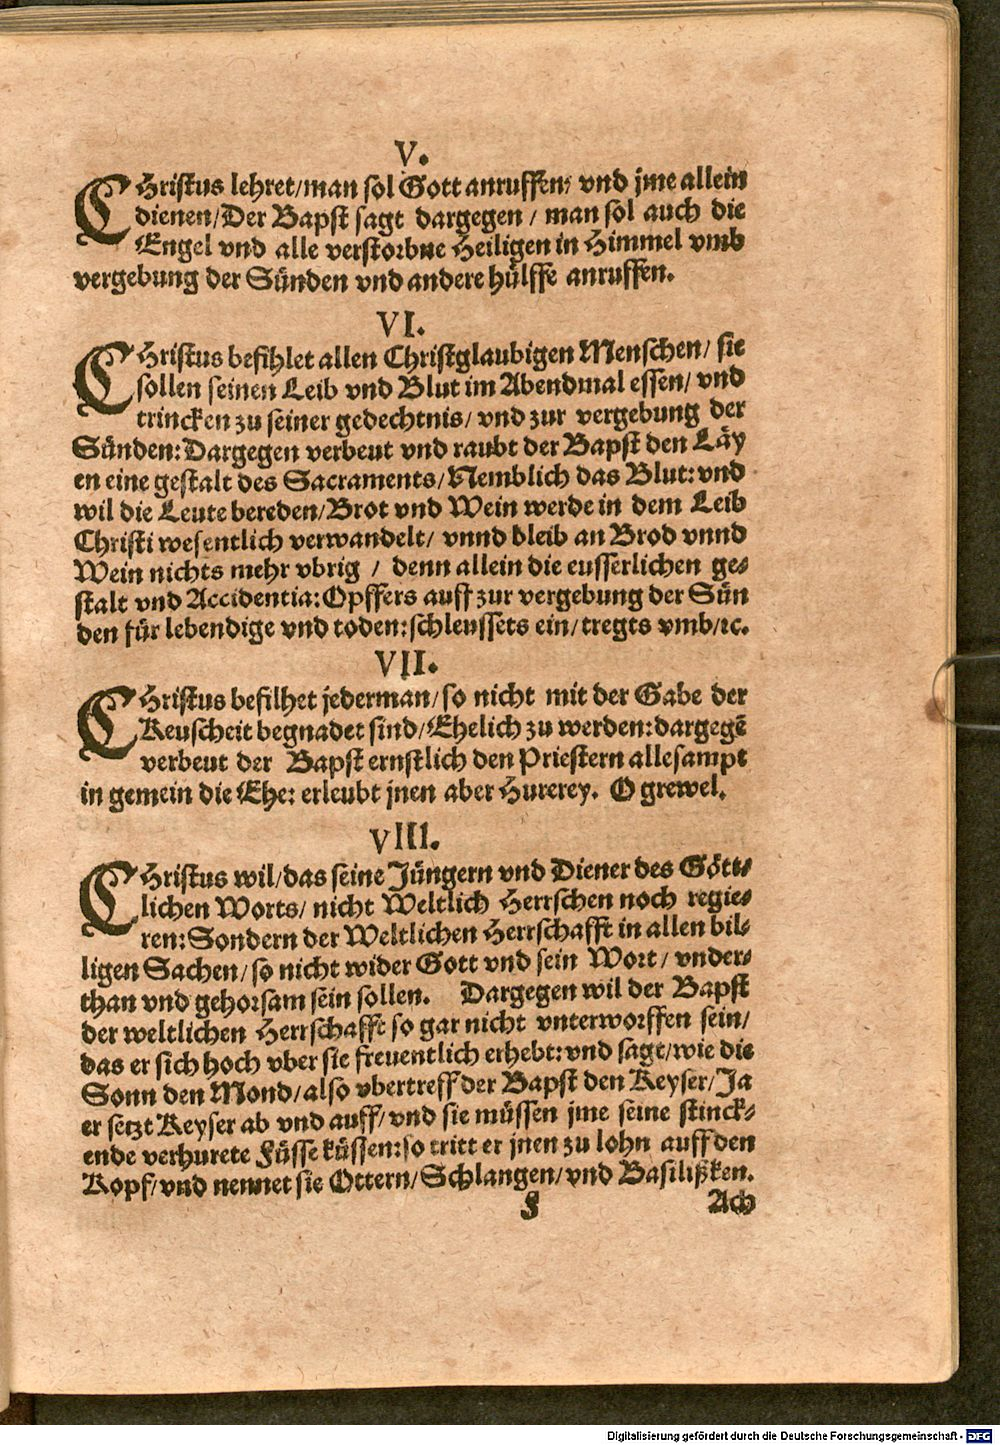 V.
CHristus lehret/man sol Gott anruffen/ vnd jme allein
dienen/Der Bapst sagt dargegen / man sol auch die
Engel vnd alle verstorbne Heiligen in Himmel vmb
vergebung der Sünden vnd andere hülffe anruffen.
VI.
CHristus befihlet allen Christglaubigen Menschen/ sie
sollen seinen Leib vnd Blut im Abendmal essen/ vnd
trincken zu seiner gedechtnis/ vnd zur vergebung der
Sünden: Dargegen verbeut vnd raubt der Bapst den Läy
en eine gestalt des Sacraments/ Nemblich das Blut: vnd
wil die Leute bereden/Brot vnd Wein werde in dem Leib
Christi wesentlich verwandelt/ vnnd bleib an Brod vnnd
Wein nichts mehr vbrig / denn allein die eusserlichen ge-
stalt vnd Accidentia: Opffers auff zur vergebung der Sün
den für lebendige vnd toden: schleussets ein/ tregts vmb/ꝛc.
VII.
CHristus befilhet jederman/ so nicht mit der Gabe der
Keuscheit begnadet sind/Ehelich zu werden: dargegē
verbeut der Bapst ernstlich den Priestern allesampt
in gemein die Ehe: erleubt jnen aber Hurerey. O grewel.
VIII.
CHristus wil/das seine Jüngern vnd Diener des Gött-
lichen Worts/ nicht Weltlich Herrschen noch regie-
ren: Sondern der Weltlichen Herrschafft in allen bil-
ligen Sachen/ so nicht wider Gott vnd sein Wort/ vnder-
than vnd gehorsam sein sollen. Dargegen wil der Bapst
der weltlichen Herrschafft so gar nicht vnterworffen sein/
das er sich hoch vber sie freuentlich erhebt: vnd sagt/wie die
Sonn den Mond/ also vbertreff der Bapst den Keyser/Ja
er setzt Keyser ab vnd auff/ vnd sie müssen jme seine stinck-
ende verhurete Füsse küssen: so tritt er jnen zu lohn auff den
Kopf/ vnd nennet sie Ottern/Schlangen/ vnd Basilißken.
F Ach
Digitalisierung gefördert durch die Deutsche Forschungsgemeinschaft - DFG